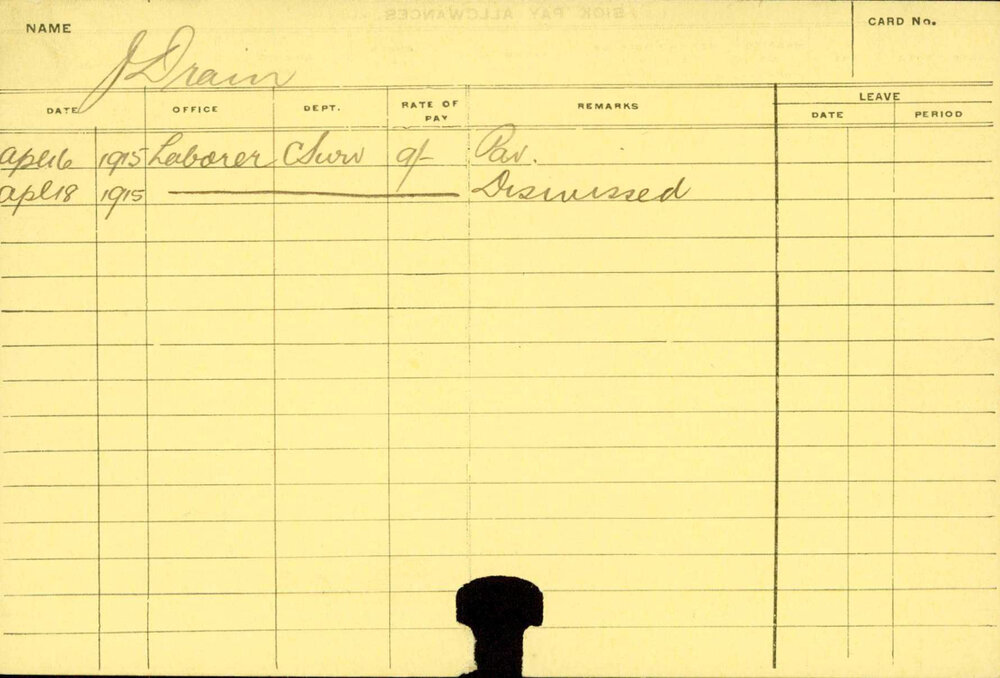 SICK PAY ALLOWANCES
NAME J Drain CARD No.
DATE OFFICE DEPT. RATE OF PAY REMARKS LEAVE
DATE PERIOD
Apl 16 1915 Laborer C Surv 9/- Pav.
Apl 18 1915 Dismissed